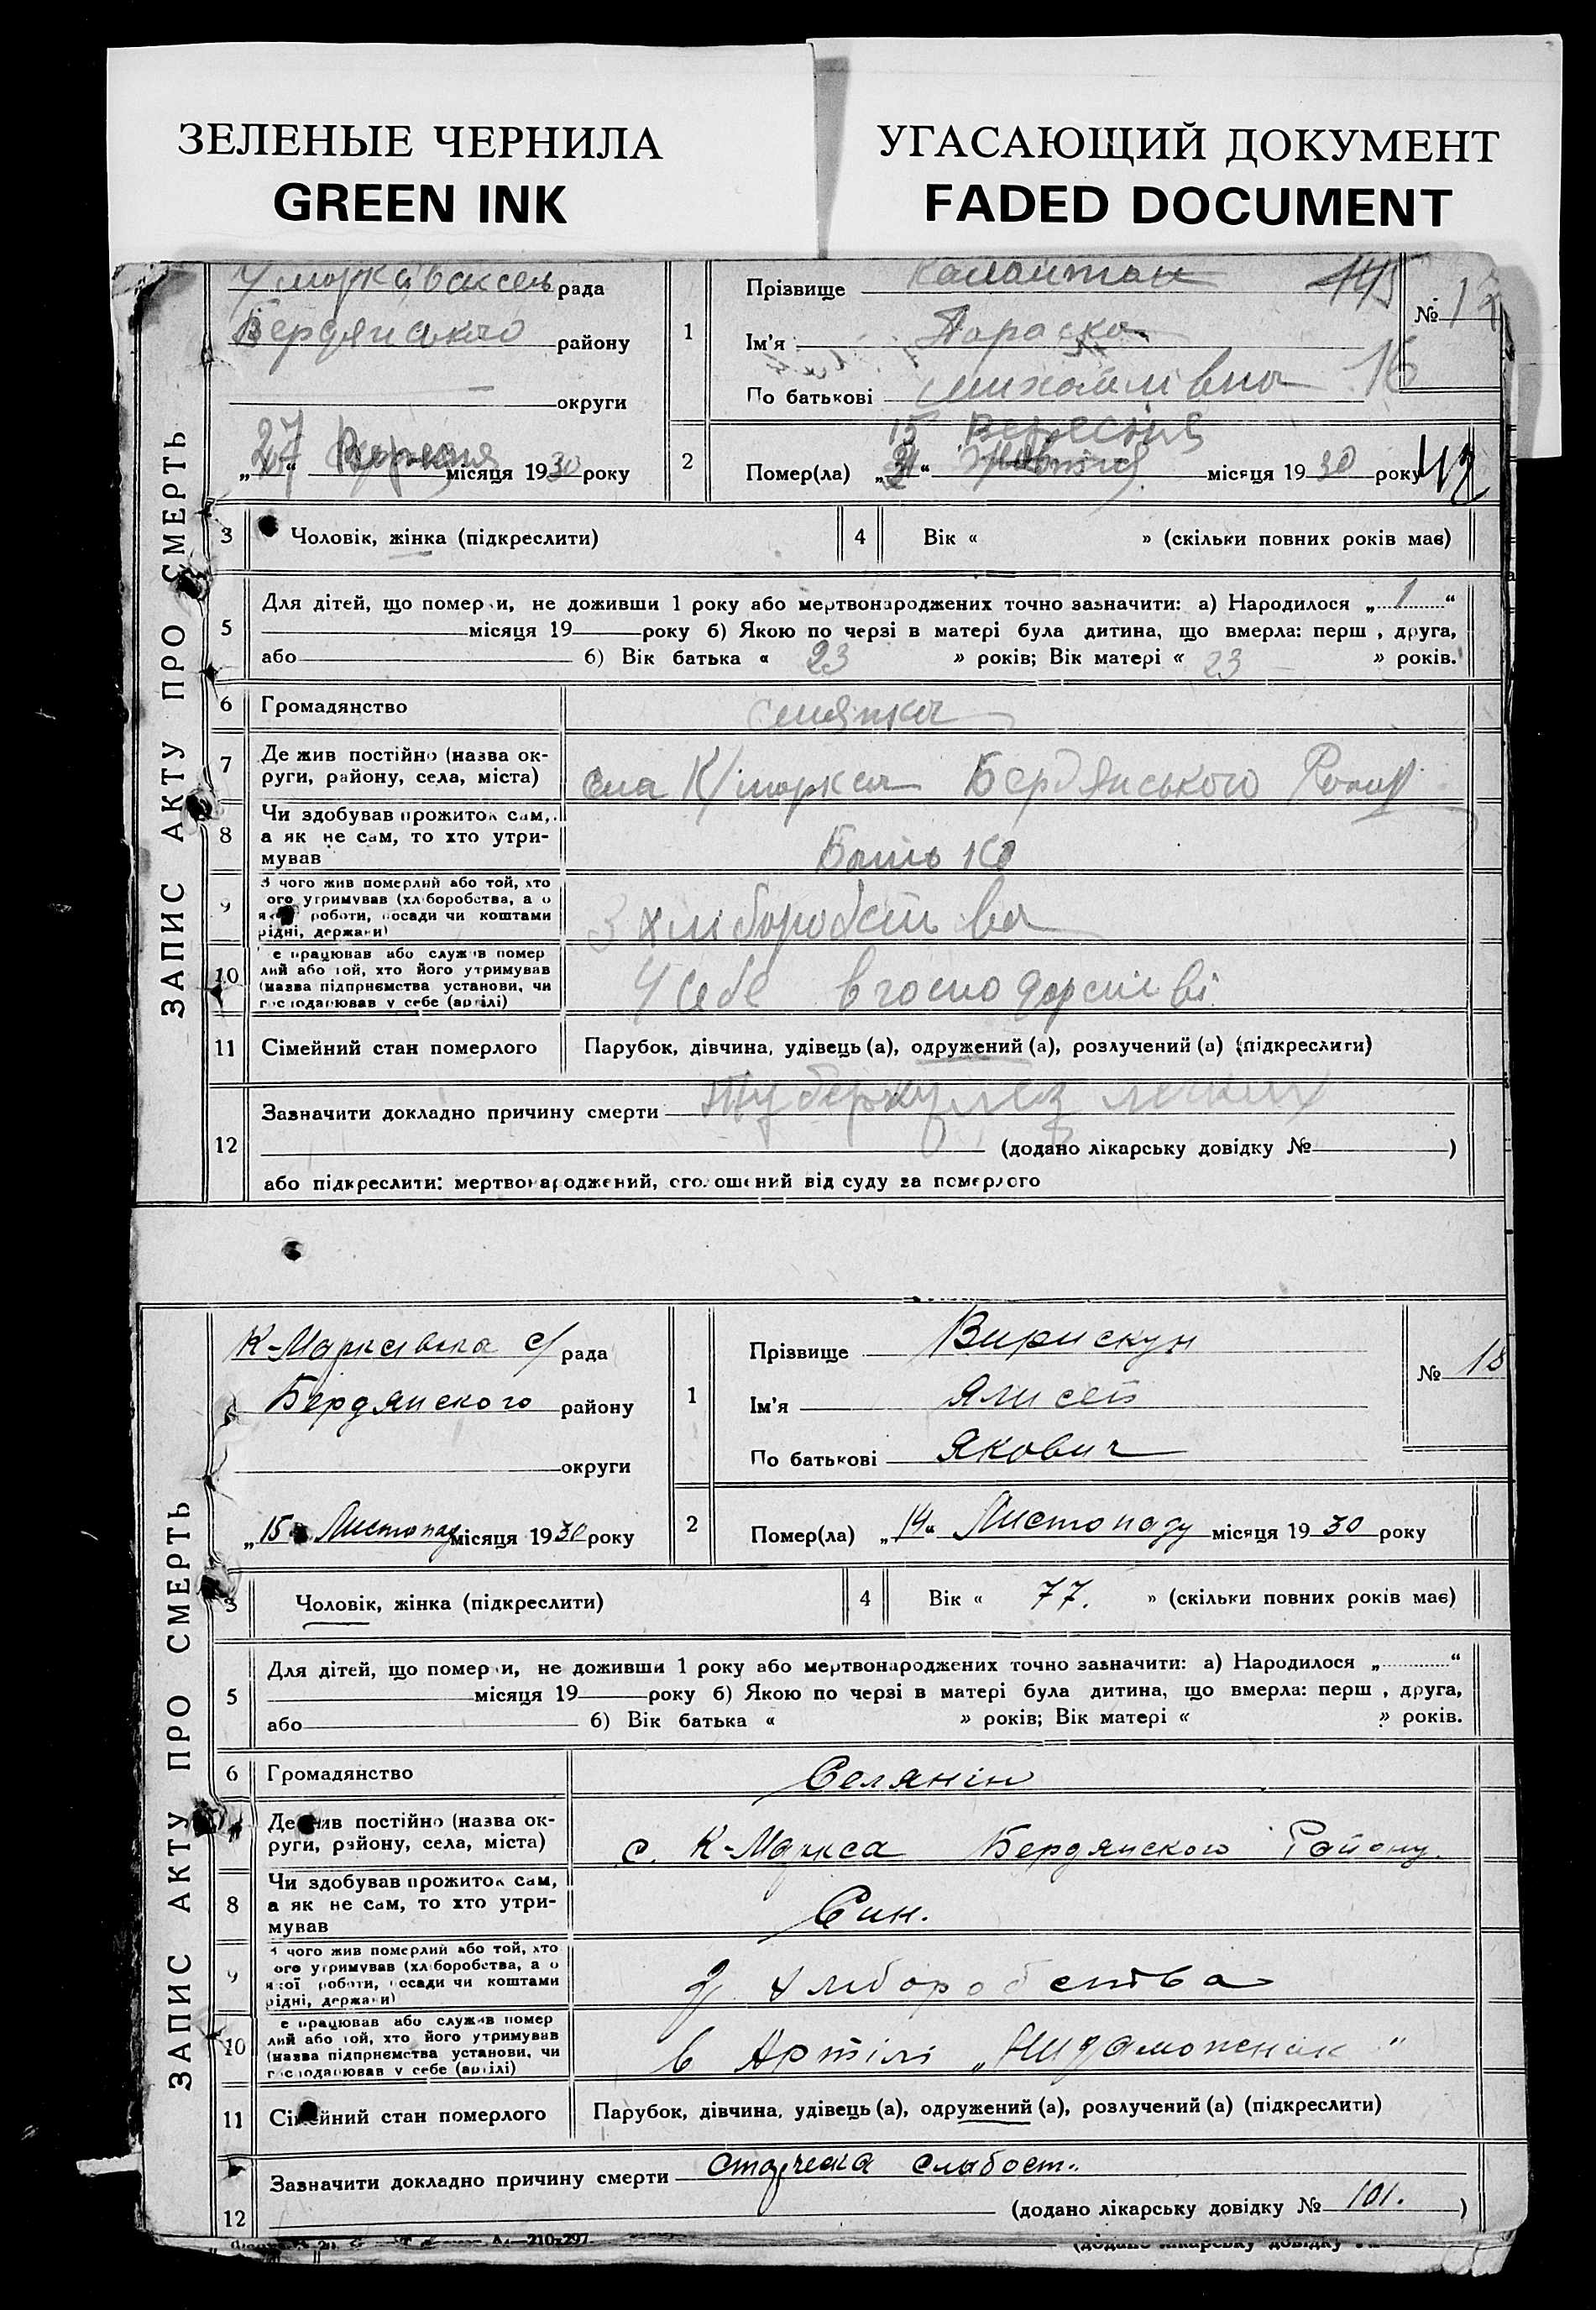 ЗЕЛЕНЫЕ ЧЕРНИЛА
GREEN INK
УГАСАЮЩИЙ ДОКУМЕНТ
FADED DOCUMENT
ЗАПИС АКТУ ПРО СМЕРТЬ
рада
Бердянського району
округи
„27“ місяця 1930 року
1
Прізвище
Ім'я Параска
По батькові Михайлівна 16
145
№ 17
2
Помер(ла) 15 Вересня місяця 1930 року 42
3 Чоловік, жінка (підкреслити)
4 Вік « » (скільки повних років має)
5
Для дітей, що померли, не доживши 1 року або мертвонароджених точно зазначити: а) Народилося „1“
місяця 19 року б) Якою по черзі в матері була дитина, що вмерла: перш , друга,
або б) Вік батька « 23 » років; Вік матері « 23 » років.
6 Громадянство
7 Де жив постійно (назва ок-
руги, району, села, міста)
К/Маркса Бердянського
8 Чи здобував прожиток сам,
а як не сам, то хто утри-
мував
Батько
9 З чого жив померлий або той, хто
ого утримував (хліборобства, а о
роботи, посади чи коштами
рідні, держави)
З хліборобства
10 е працював або служив помер
лий або той, хто його утримував
(назва підприємства установи, чи
господарював у себе (артілі)
У себе в господарстві
11 Сімейний стан померлого Парубок, дівчина, удівець (а), одружений (а), розлучений (а) (підкреслити)
12
Зазначити докладно причину смерти Туберкульоз легких
(додано лікарську довідку № )
або підкреслити: мертвонароджений, оголошений від суду за померлого
ЗАПИС АКТУ ПРО СМЕРТЬ
К-Марксівська с/рада
Бердянского району
округи
„15“ Листопад місяця 1930 року
1
Прізвище Вирискун
Ім'я Ялисей
По батькові Якович
№ 18
2
Помер(ла) „14“ Листопаду місяця 1930 року
3 Чоловік, жінка (підкреслити)
4 Вік « 77. » (скільки повних років має)
5
Для дітей, що померли, не доживши 1 року або мертвонароджених точно зазначити: а) Народилося „ “
місяця 19 року б) Якою по черзі в матері була дитина, що вмерла: перш , друга,
або б) Вік батька « » років; Вік матері « » років.
6 Громадянство Селянін
Де жив постійно (назва ок-
руги, району, села, міста)
с. К-Маркса Бердянского Району.
8 Чи здобував прожиток сам,
а як не сам, то хто утри-
мував
Син.
9 чого жив померлий або той, хто
ого утримував (хліборобства, а о
якої роботи, посади чи коштами
рідні, держави)
З хліборобства
10 е працював або служив помер
лий або той, хто його утримував
(назва підприємства установи, чи
господарював у себе (артілі)
в Артілі „Нидаможник"
11 Сімейний стан померлого Парубок, дівчина, удівець (а), одружений (а), розлучений (а) (підкреслити)
12
Зазначити докладно причину смерти Старческа слабост.
(додано лікарську довідку № 101. )
210х297
(додано лікарську довідку